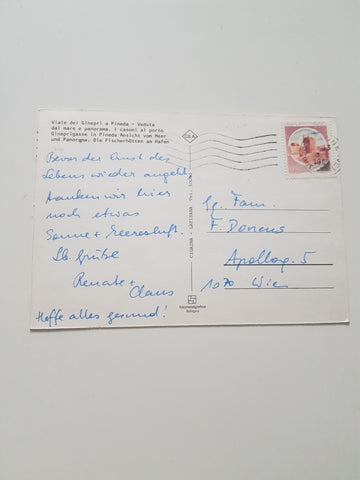 Viale dei Ginepri a Pineda - Veduta
dal mare e panorama. I casoni al porto
Gineprigasse in Pineda Ansicht vom Meer
und Panorama. Die Fischerhütten am Hafen
Bevor der Ernst des
Lebens wieder angeht
tanken wir hier
noch etwas
Sonne + Meeresluft.
Lb. Grüße
Renate +
Claus
Hoffe alles gesund!
CIGAINA - LATISANA - Tel.
Fam.
F. Doneus
Apollog. 5
1070 Wien
fotometalgrafica
Bologna